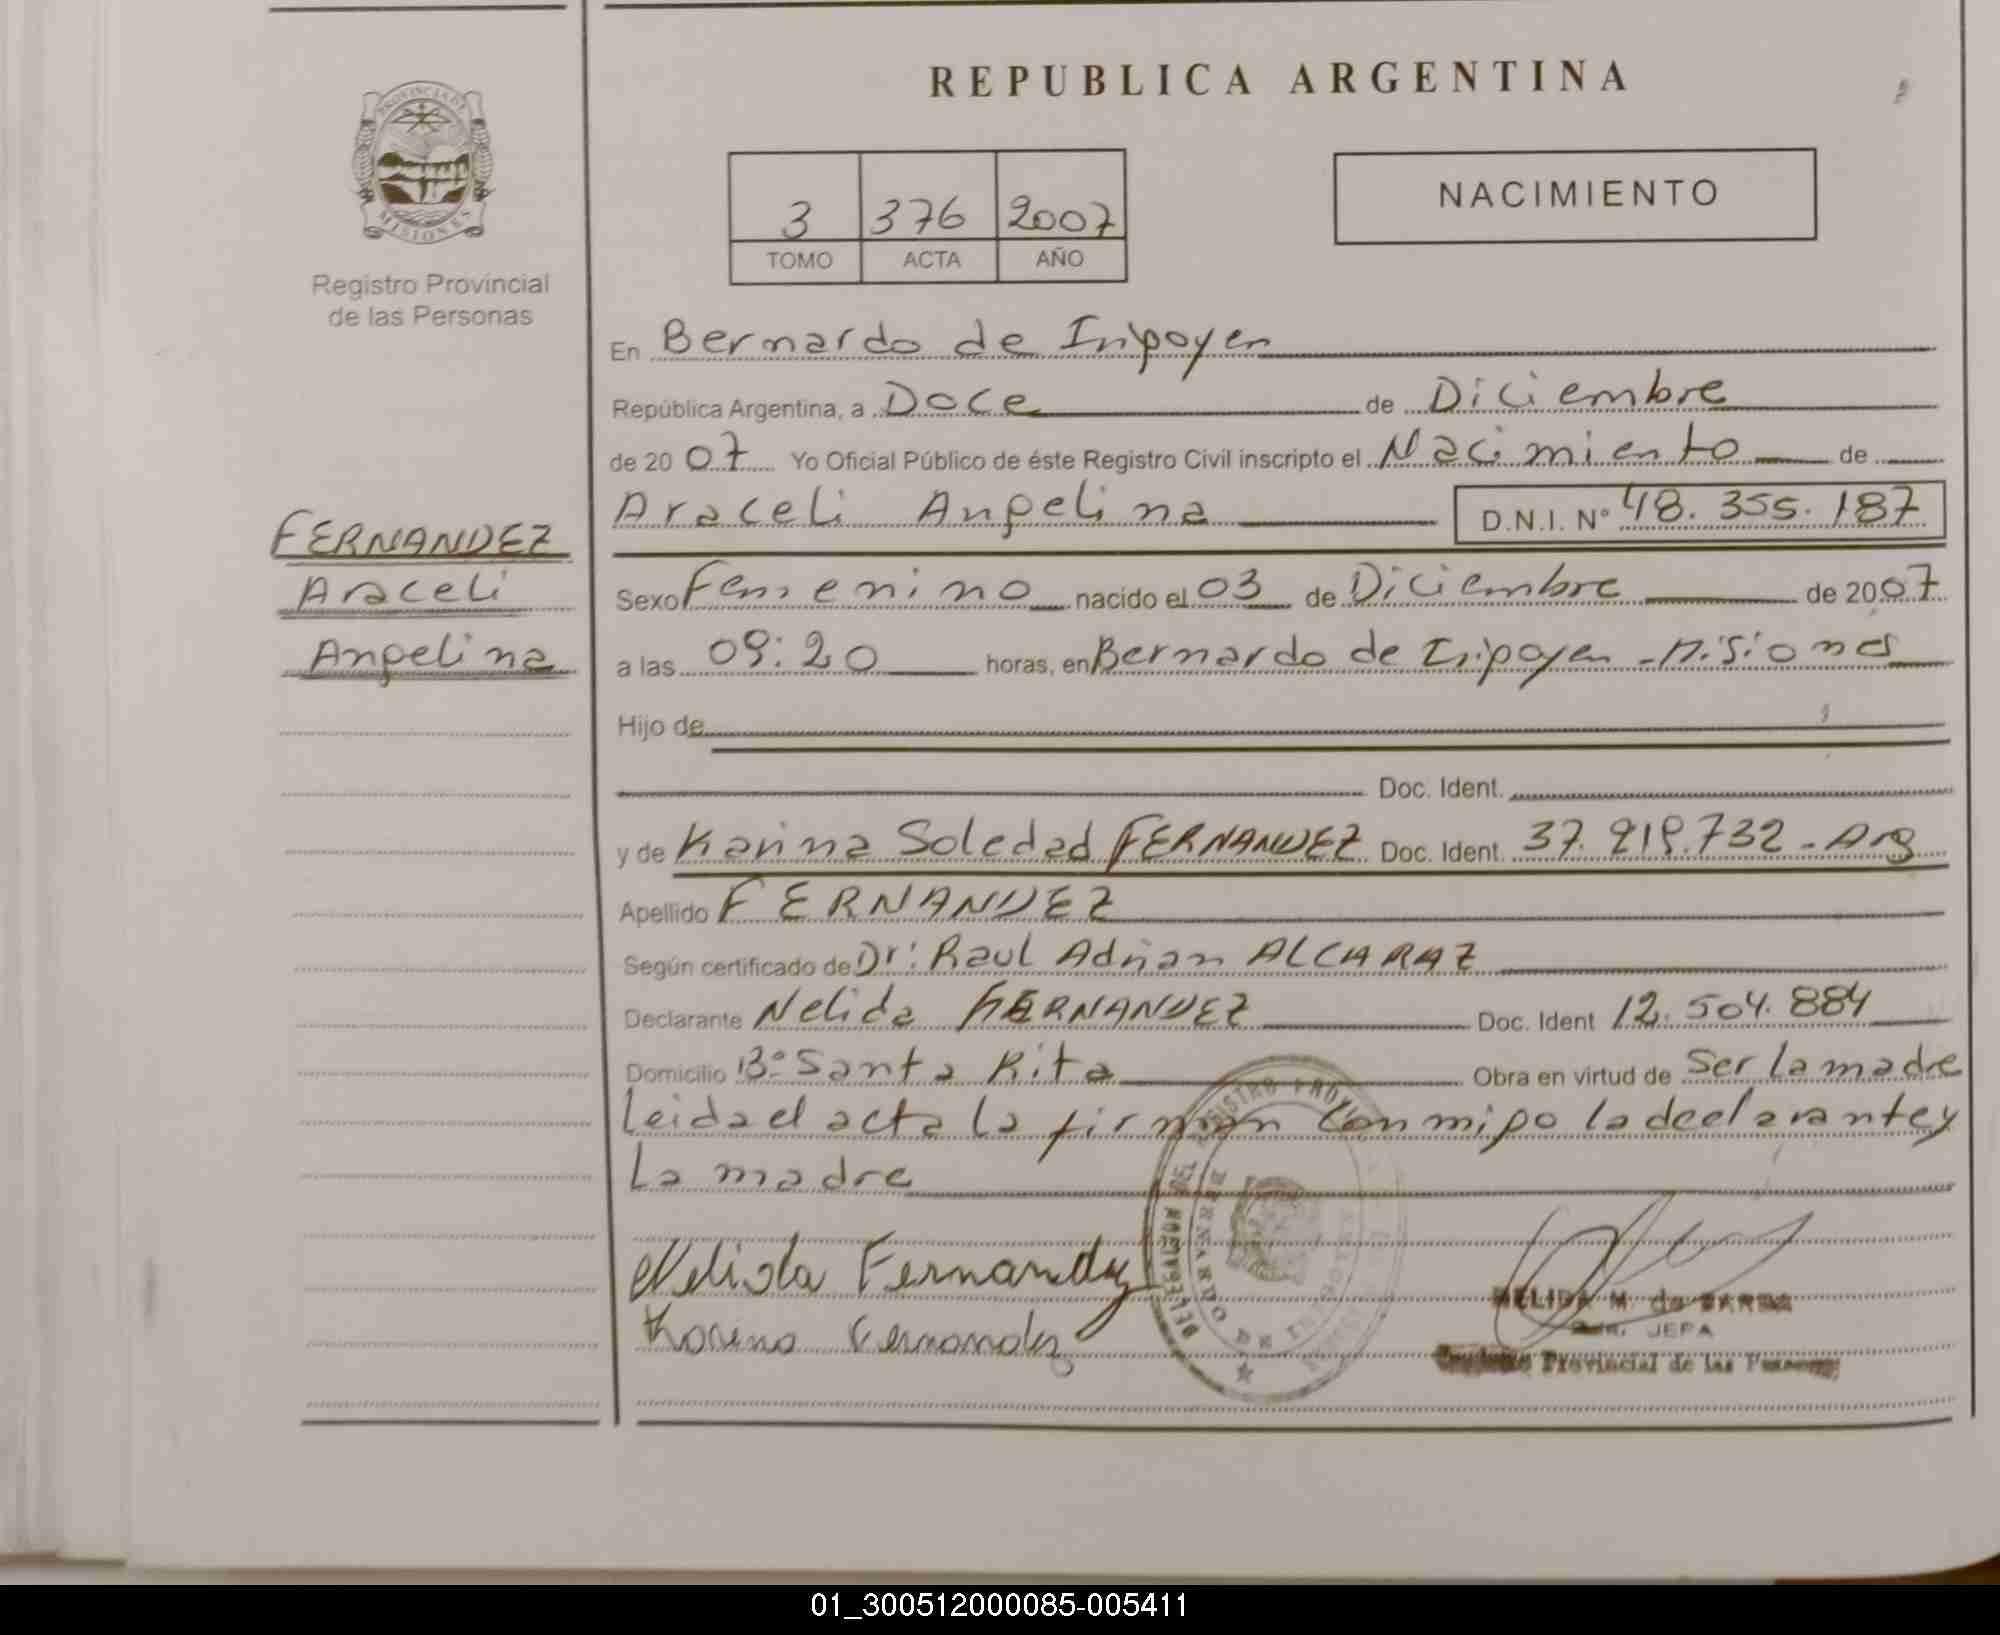 REPUBLICA ARGENTINA
PROVINCIA DE MISIONES
Registro Provincial
de las Personas
3 376 2007
TOMO ACTA AÑO
NACIMIENTO
En Bernardo de Iripoyen
República Argentina, a Doce de Diciembre
de 2007 Yo Oficial Público de éste Registro Civil inscripto el Nacimiento de
Araceli Angelina D.N.I. N° 48.355.187
FERNANDEZ
Araceli
Angelina
Sexo Femenino nacido el 03 de Diciembre de 2007
a las 09:20 horas, en Bernardo de Iripoyen - Misiones
Hijo de
Doc. Ident.
y de Karina Soledad FERNANDEZ Doc. Ident. 37.219.732 - Arg
Apellido FERNANDEZ
Según certificado de Dr: Raul Adrian ALCARAZ
Declarante Nelida FERNANDEZ Doc. Ident 12.504.884
Domicilio B° Santa Rita Obra en virtud de Ser la madre
Leida el acta la firman conmigo la declarante y
La madre
Nelida Fernandez
Karina Fernandez
DELEGACION BERNARDO DE
NELIDA M. de BARBA
JEFA
Provincial de las
01_300512000085-005411